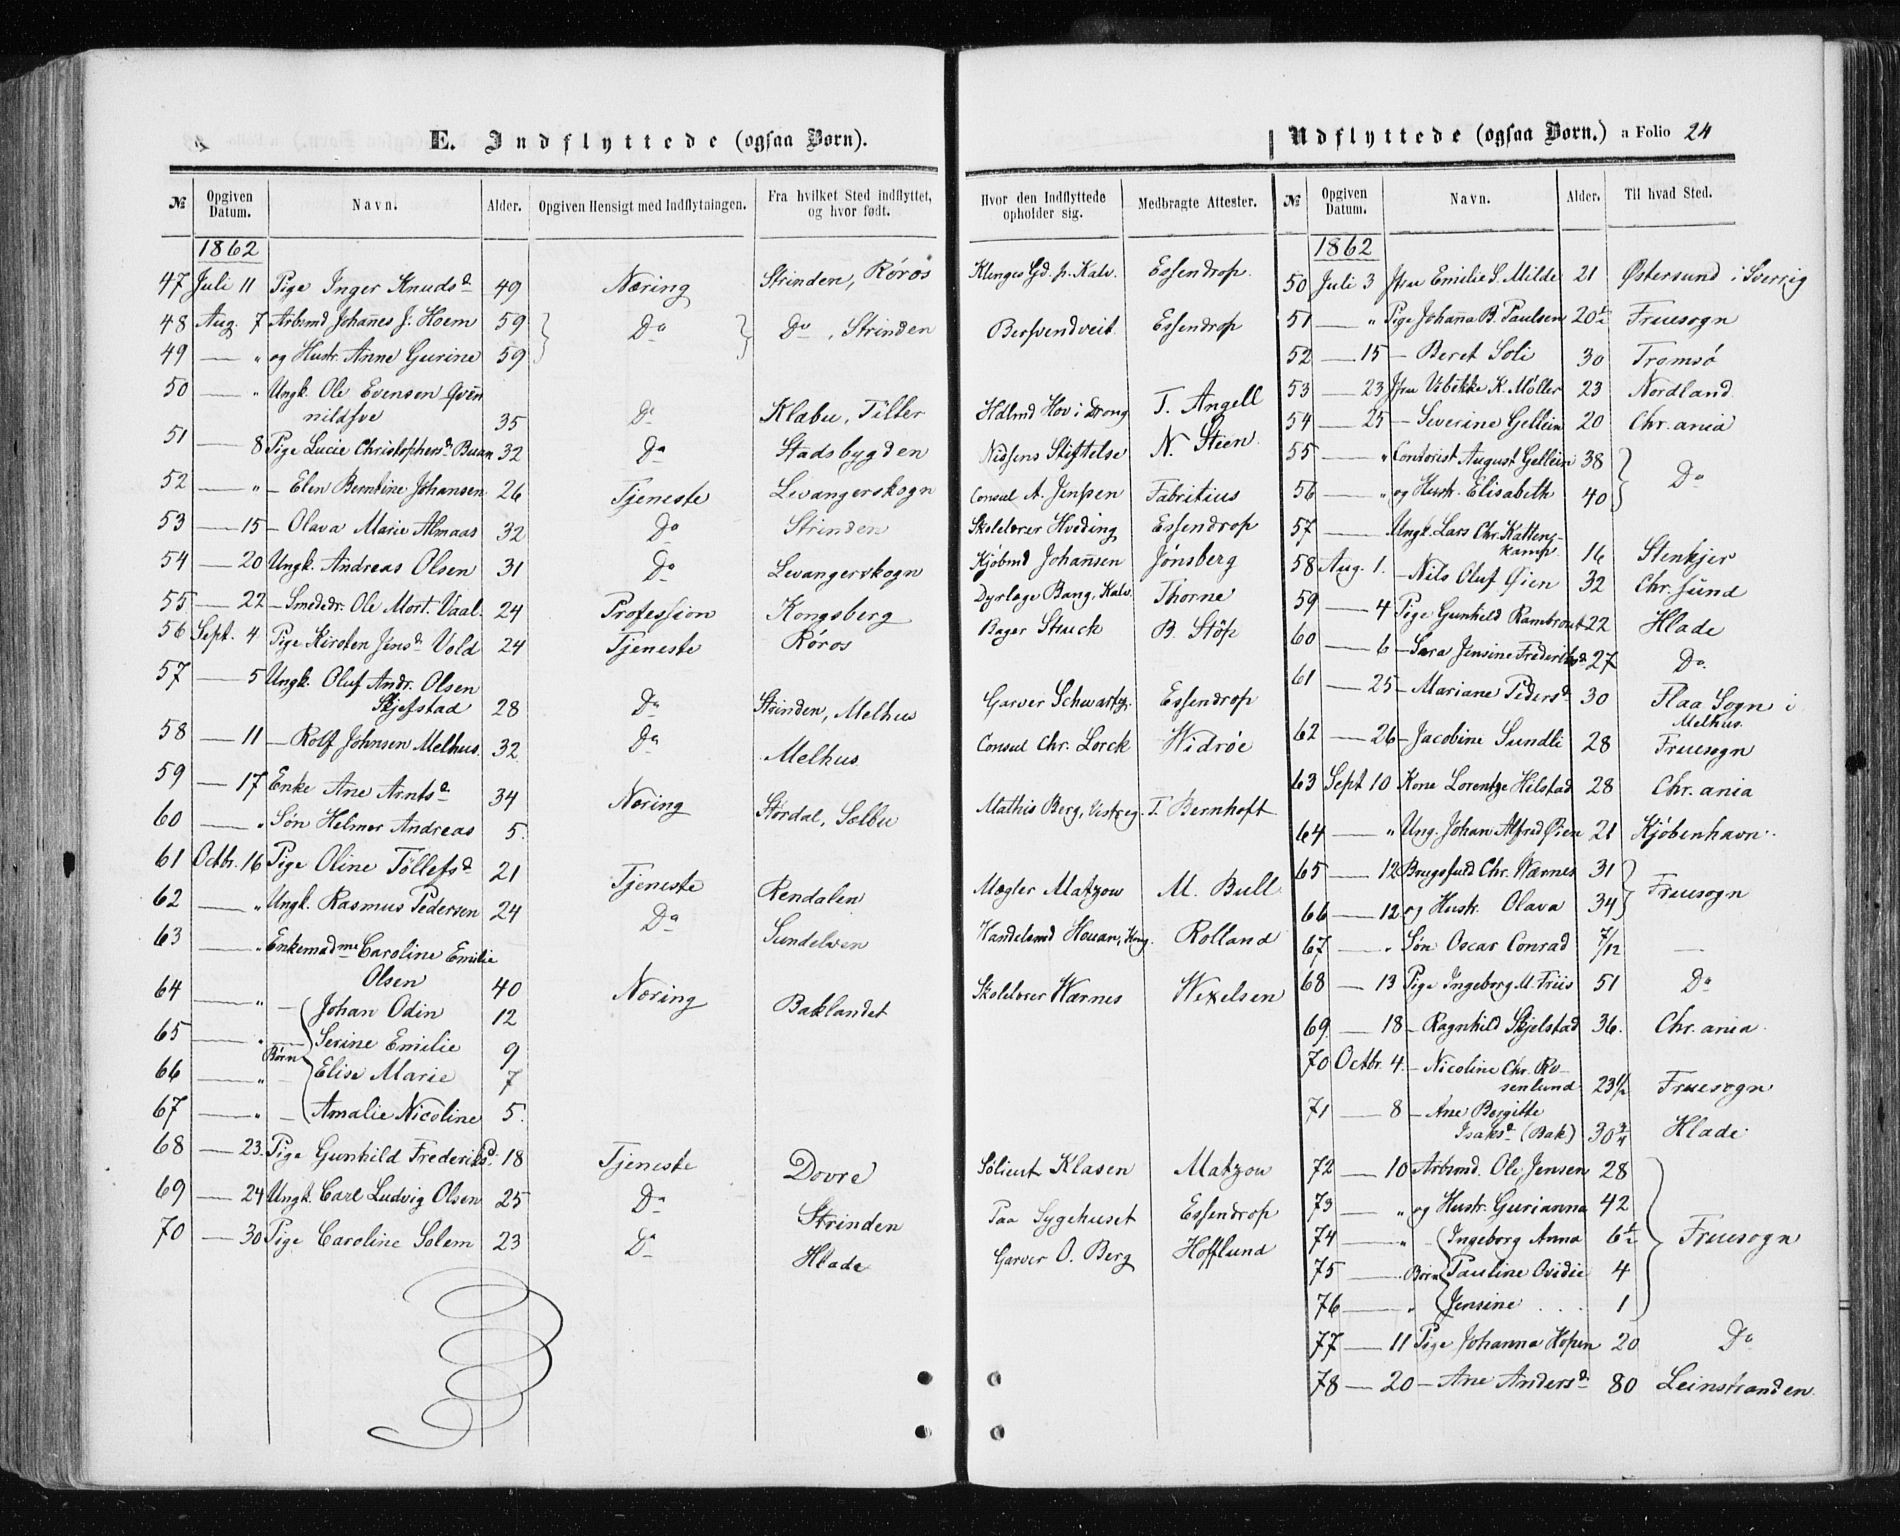 E. Indflyttede (ogsaa Børn).
№ | Opgiven Datum. | Navn. | Alder. | Opgiven Hensigt med Indflytningen. | Fra hvilket Sted indflyttet, og hvor født. | Hvor den Indflyttede opholder sig. | Medbragte Attester.
1862
47 Juli 11 Pige Inger Knudsd. 49 Næring Strinden, Røros Klenges Gd. p. Kalv. Essendrop.
48 Aug. 7 Arbmd Johannes J. Hoem 59 Do Do, Strinden Bersvendveit Essendrop
49 — " og Hustr. Anne Gurine 59
50 — " Ungk. Ole Evensen
35 Do Klæbu, Tiller Hdlmd Hov i Drong T. Angell
51 — 8 Pige Lucie Christophersd. Buan 32 Do Stadsbygden Nissens Stiftelse N. Stien
52 — " — Elen Berntine Johansen 26 Tjeneste Levangerskogn Consul A. Jenssen Fabritius
53 — 15 — Olava Marie Almaas 32 Do Strinden Skolelærer Hveding Essendrop
54 — 20 Ungk. Andreas Olsen 31 Do Levangerskogn Kjøbmd Johansen Jønsberg
55 — 22 — Smededr. Ole Mort. Vaal. 24 Profession Kongsberg Dyrlæge Bang, Kalv. Thorne
56 Sept. 4 Pige Kirsten Jensd. Vold 24 Tjeneste Røros Bager Struck B. Støp
57 — 5 Ungk. Oluf Andr. Olsen
Skjefstad 28 Do Strinden, Melhus Garver Schwartz. Essendrop
58 — 11 — Rolf Johnsen Melhus. 32 Do Melhus Consul Chr. Lorck Widrøe
59 — 17 Enke Ane Arntsd. 34 Næring Størdal, Selbu Mathis Berg, T. Bernhoft
60 — " Søn Helmer Andreas 5.
61 Octbr. 16 Pige Oline Tøllefsd. 21 Tjeneste Rendalen Mægler Matzow M. Bull
62 — " Ungk. Rasmus Pedersen 24 Do Sundelven Handelsmd Houan, Kong. Rolland
63 — " Enkemadme Caroline Emilie
Olsen 40 Næring Baklandet Skolelærer Wærnes Wexelsen
64 — " — Johan Odin 12
65 — " — Serine Emilie 9
Børn
66 — " — Elise Marie 7
67 — " — Amalie Nicoline 5.
68 — 23. Pige Gunhild Frederiksd. 18 Tjeneste Dovre Klasen Matzow
69 — 24 Ungk. Carl Ludvig Olsen 25 Do Strinden Paa Sygehuset Essendrop
70 — 30 Pige Caroline Solem 23 Do Hlade Garver O. Berg Hofflund
Udflyttede (ogsaa Børn.) a Folio 24
№ | Opgiven Datum. | Navn. | Alder. | Til hvad Sted.
1862
50 Juli 3 Jfru Emilie S. Milde 21 Østersund i Sverrig
51 — " Pige Johanna B. Paulsen 20½ Fruesogn
52 — 15 — Beret Soli 30 Tromsø
53 — 23 Jfru Vibekke K. Møller 23 Nordland
54 — 25 — Severine Gellein 20 Chr.ania
55 — " Contorist August Gellein 38 Do
56 — " og Hustr. Elisabeth 40
57 — Ungk. Lars Chr. Katten-
kamp 16 Stenkjer
58 Aug. 1. — Nils Oluf Øien 32 Chr.sund
59 — 4 Pige Gunhild Rambraut 22 Hlade
60 — 6 — Sara Jensine Frederiksd. 27 Do.
61 — 25 — Mariane Pedersd. 30 Flaa Sogn i
Melhus.
62 — 26 — Jacobine Sundli 28 Fruesogn
63 Sept 10 Kone Lorentze Hilstad 28 Chr.ania
64 — " Ung. Johan Alfred Øien 21 Kjøbenhavn.
65 — 12 Brugsfuld Chr. Wærnes 31 Fruesogn
66 — 12 og Hustr. Olava 34
67 — " Søn Oscar Conrad 7/12 —
68 — 13 Pige Ingeborg M. Friis 51 Do
69 — 18 — Ragnhild Skjelstad 36. Chr.ania
70 Octbr. 4. — Nicoline Chr. Ro-
senlund 23½ Fruesogn
71 — 8 — Ane Bergitte
Isaksd. (Bak) 30¾ Hlade
72 — 10 Arbmd. Ole Jensen 28
73 — " og Hustr. Gurianna 42
74 — " — Ingeborg Anna 6½ Fruesogn
75 — Børn Pauline Ovidie 4
76 — " Jensine . . . 1
77 — 11 Pige Johanna Hopen 20 Do
78 — 20 — Ane Andersd. 80 Leinstranden